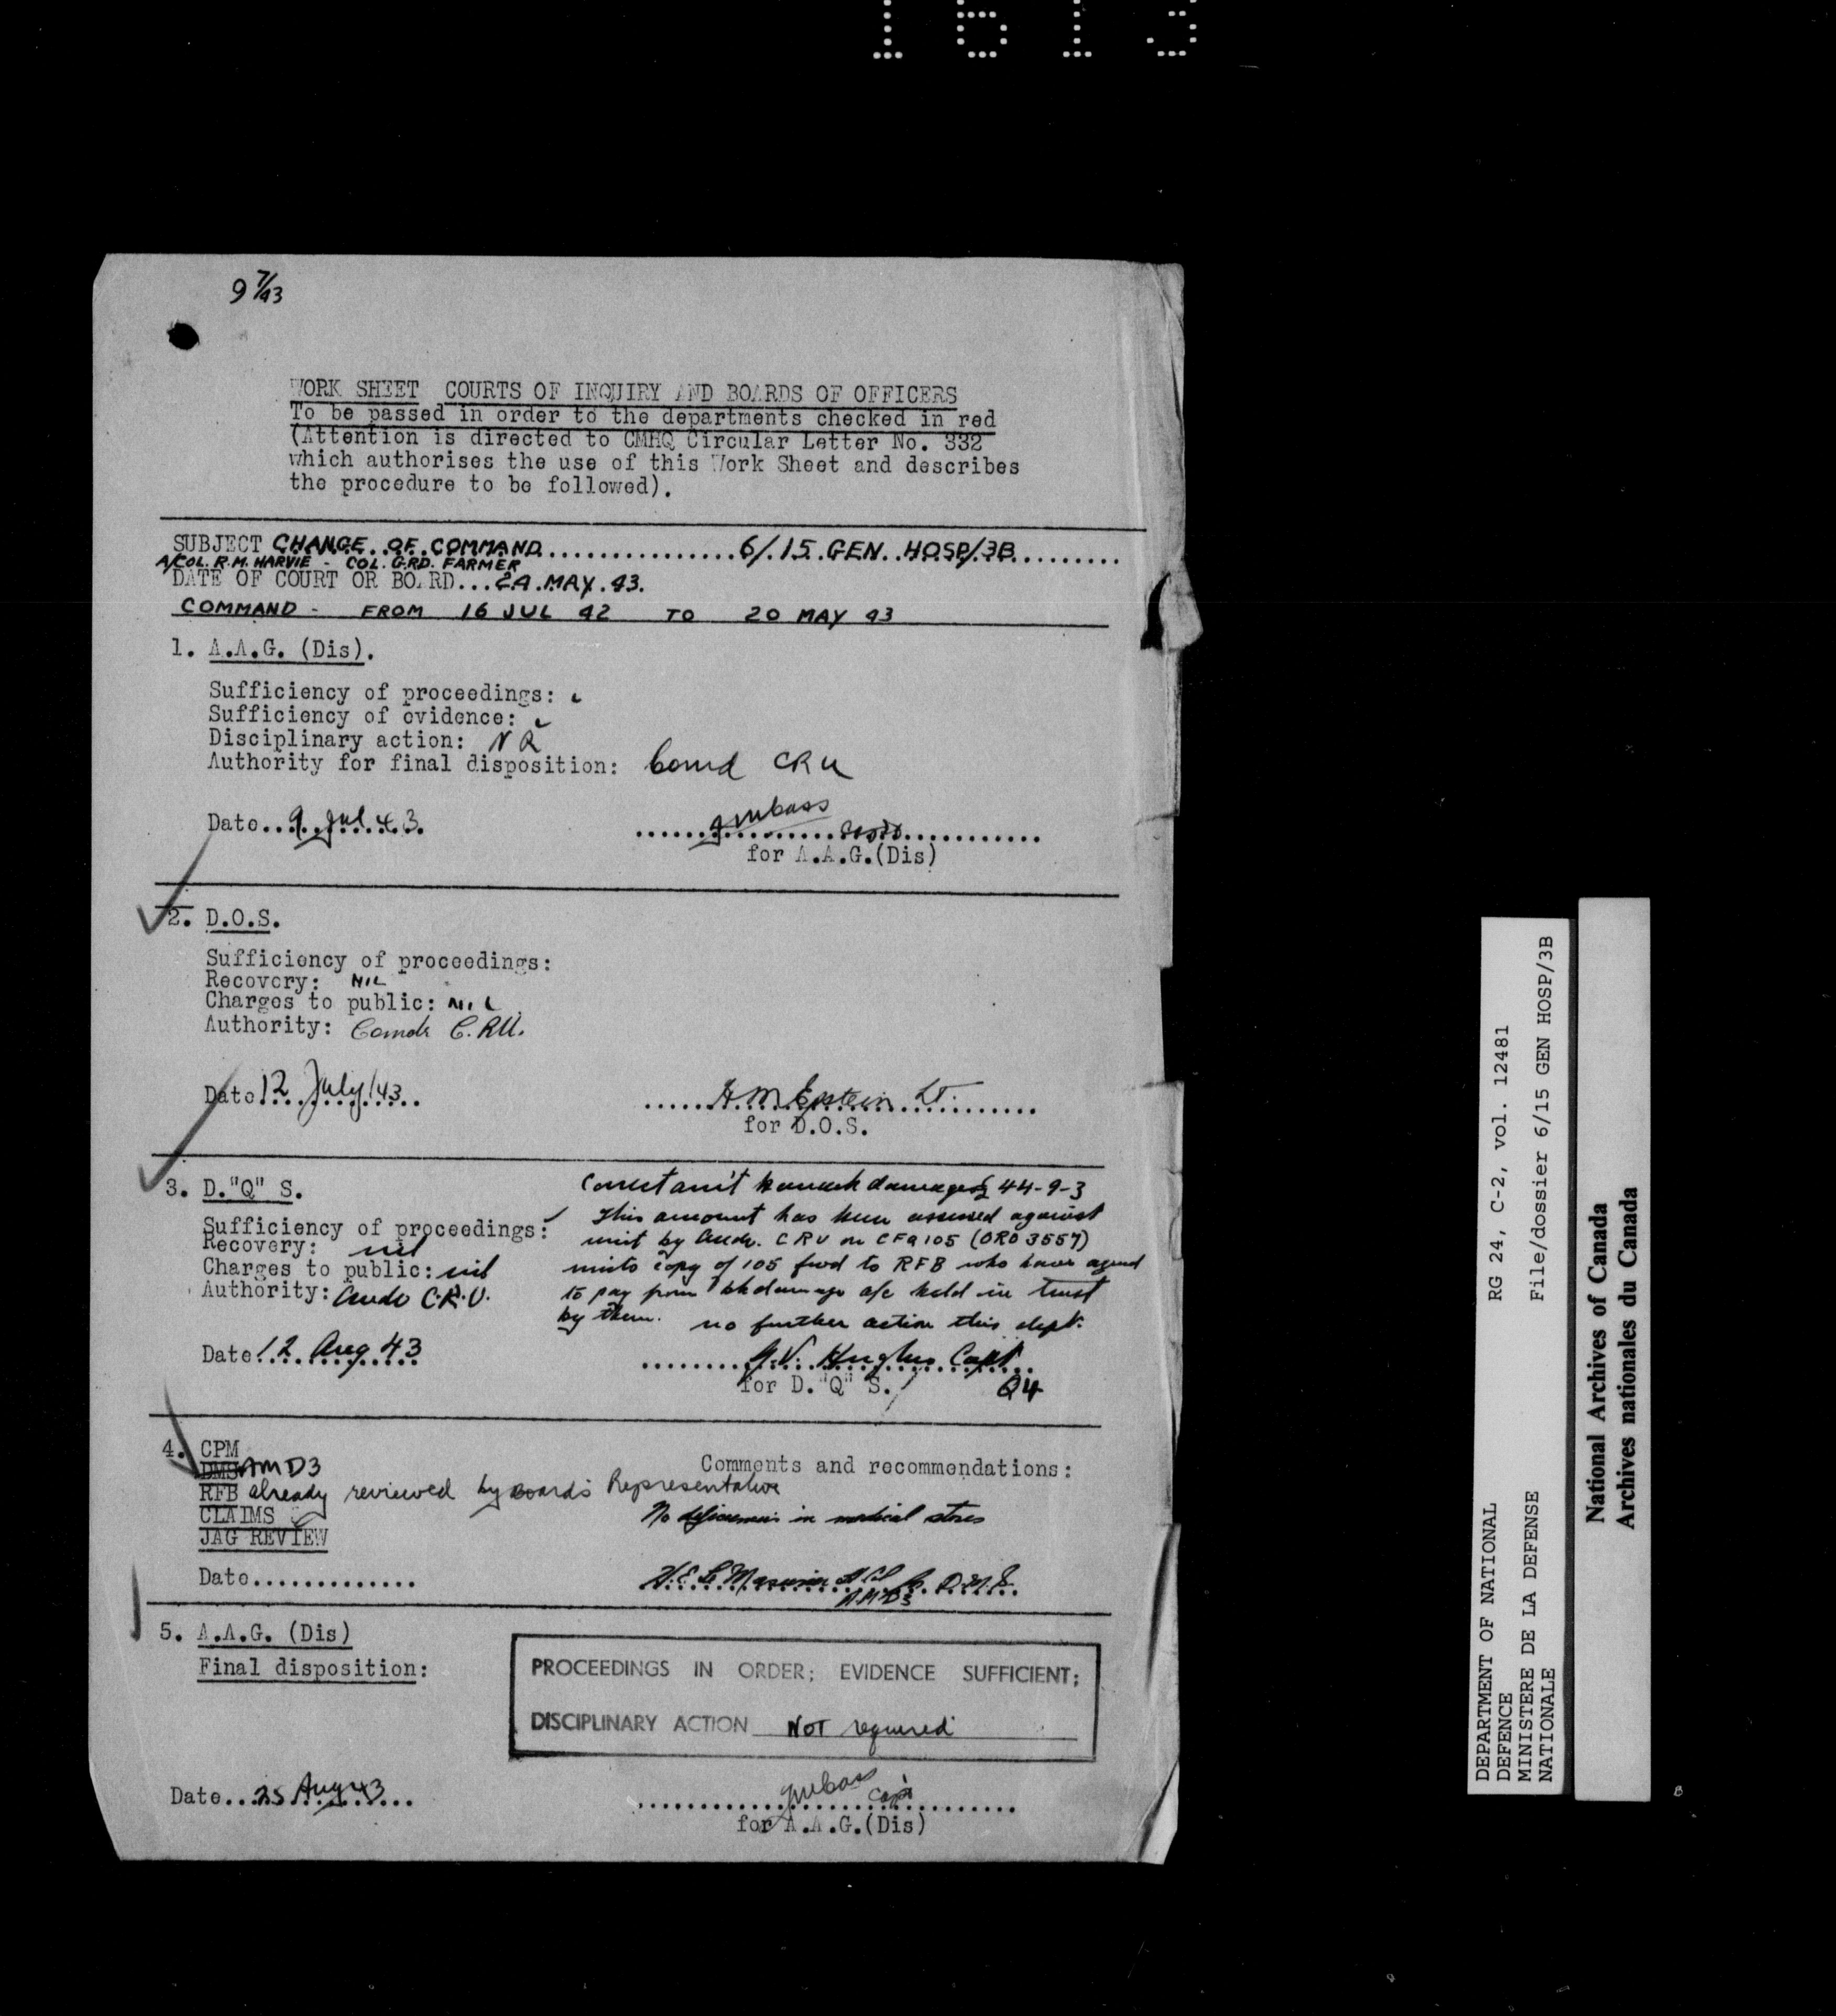 1613
9 7/43
WORK SHEET COURTS OF INQUIRY AND BOARDS OF OFFICERS
To be passed in order to the departments checked in red
(Attention is directed to CMHQ Circular Letter No. 332
which authorises the use of this Work Sheet and describes
the procedure to be followed).
SUBJECT CHANGE OF COMMAND...............6/15 GEN HOSP/3B.........
A/COL. R.M. HARVIE - COL. G.R.D. FARMER
DATE OF COURT OR BOARD...24 MAY 43.
COMMAND - FROM 16 JUL 42 TO 20 MAY 43
1. A.A.G. (Dis).
Sufficiency of proceedings:
Sufficiency of evidence:
Disciplinary action: NR
Authority for final disposition: Comd CRU
Date..9 Jul 43.
for A.A.G.(Dis)
2. D.O.S.
Sufficiency of proceedings:
Recovery: NIL
Charges to public: NIL
Authority: Comdr C.R.U.
Date 12 July/43
H M Epstein Lt.
for D.O.S.
3. D."Q" S.
Correct am't barrack damages £ 44-9-3
Sufficiency of proceedings: ✓
This amount has been assessed against
unit by Comdr. CRU on CFA 105 (ORO 3557)
Recovery: nil
Charges to public: nil
units copy of 105 fwd to RFB who have agreed
Authority: Comdr C.R.U.
to pay from bk damage a/c held in trust
by them. no further action this dept.
Date 12 Aug 43
G.V. Hughes Capt
for D."Q" S. Q4
4. CPM
DMS AMD3
Comments and recommendations:
RFB already reviewed by Boards Representative
CLAIMS
No deficiencies in medical stores
JAG REVIEW
Date.............
AMD3 D.M.S.
5. A.A.G. (Dis)
Final disposition:
PROCEEDINGS IN ORDER; EVIDENCE SUFFICIENT;
DISCIPLINARY ACTION NOT required
Date...25 Aug 43...
Capt
for A.A.G.(Dis)
DEPARTMENT OF NATIONAL
DEFENCE
MINISTERE DE LA DEFENSE
NATIONALE
RG 24, C-2, vol. 12481
File/dossier 6/15 GEN HOSP/3B
National Archives of Canada
Archives nationales du Canada